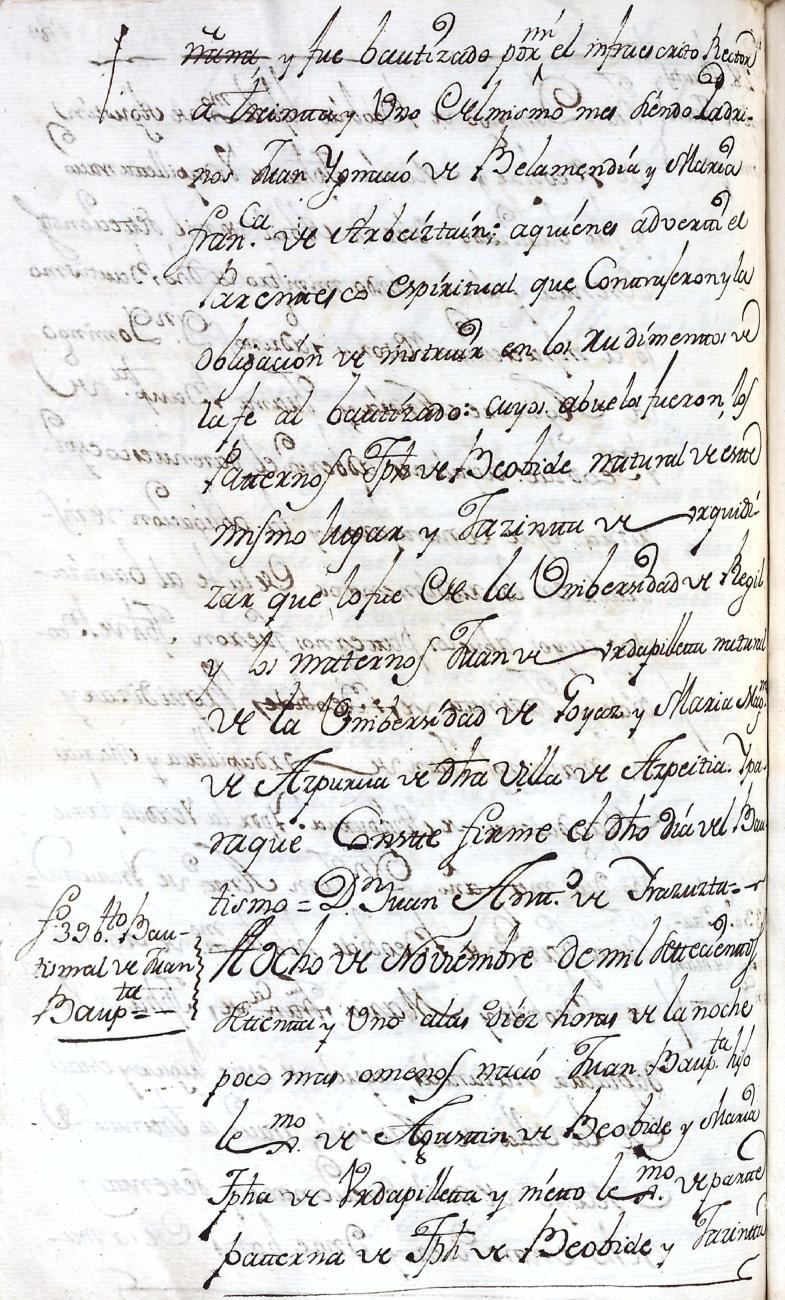 ñana, y fue bautizado por mi el infraescrito Rector
a treinta y Uno del mismo mes siendo Padri-
nos Juan Ygnacio de Belamendia y Maria
Fran.ca de Arbeiztain; aquienes adverti el
Parentesco espiritual que Contrageron y la
obligacion de instruir en los Rudimentos de
la fe al bautizado: cuyos abuelos fueron, los
Patternos Jph de Beobide natural de este
mismo lugar y Jazinta de Urquidi-
zar que lo fue de la Unibersidad de Regil
y los maternos Juan de Urdapilleta natural
de la Unibersidad de Goyaz y Maria Mag.na
de Azpurua de dha Villa de Azpeitia. Ypa-
raque Conste firme el dho dia del Bau-
tismo = D.n Juan Ant.o de Irazuzta =
fº 396.tto Bau-
tismal de Juan
Baup.ta =
A Ocho de Noviembre de mil settecientos
settenta y Uno alas diez horas de la noche
poco mas omenos nació Juan Baup.ta hijo
le.mo de Agustin de Beobide y Maria
Jpha de Urdapilletta y nietto le.mo de partte
patterna de Jph de Beobide y Jazinta